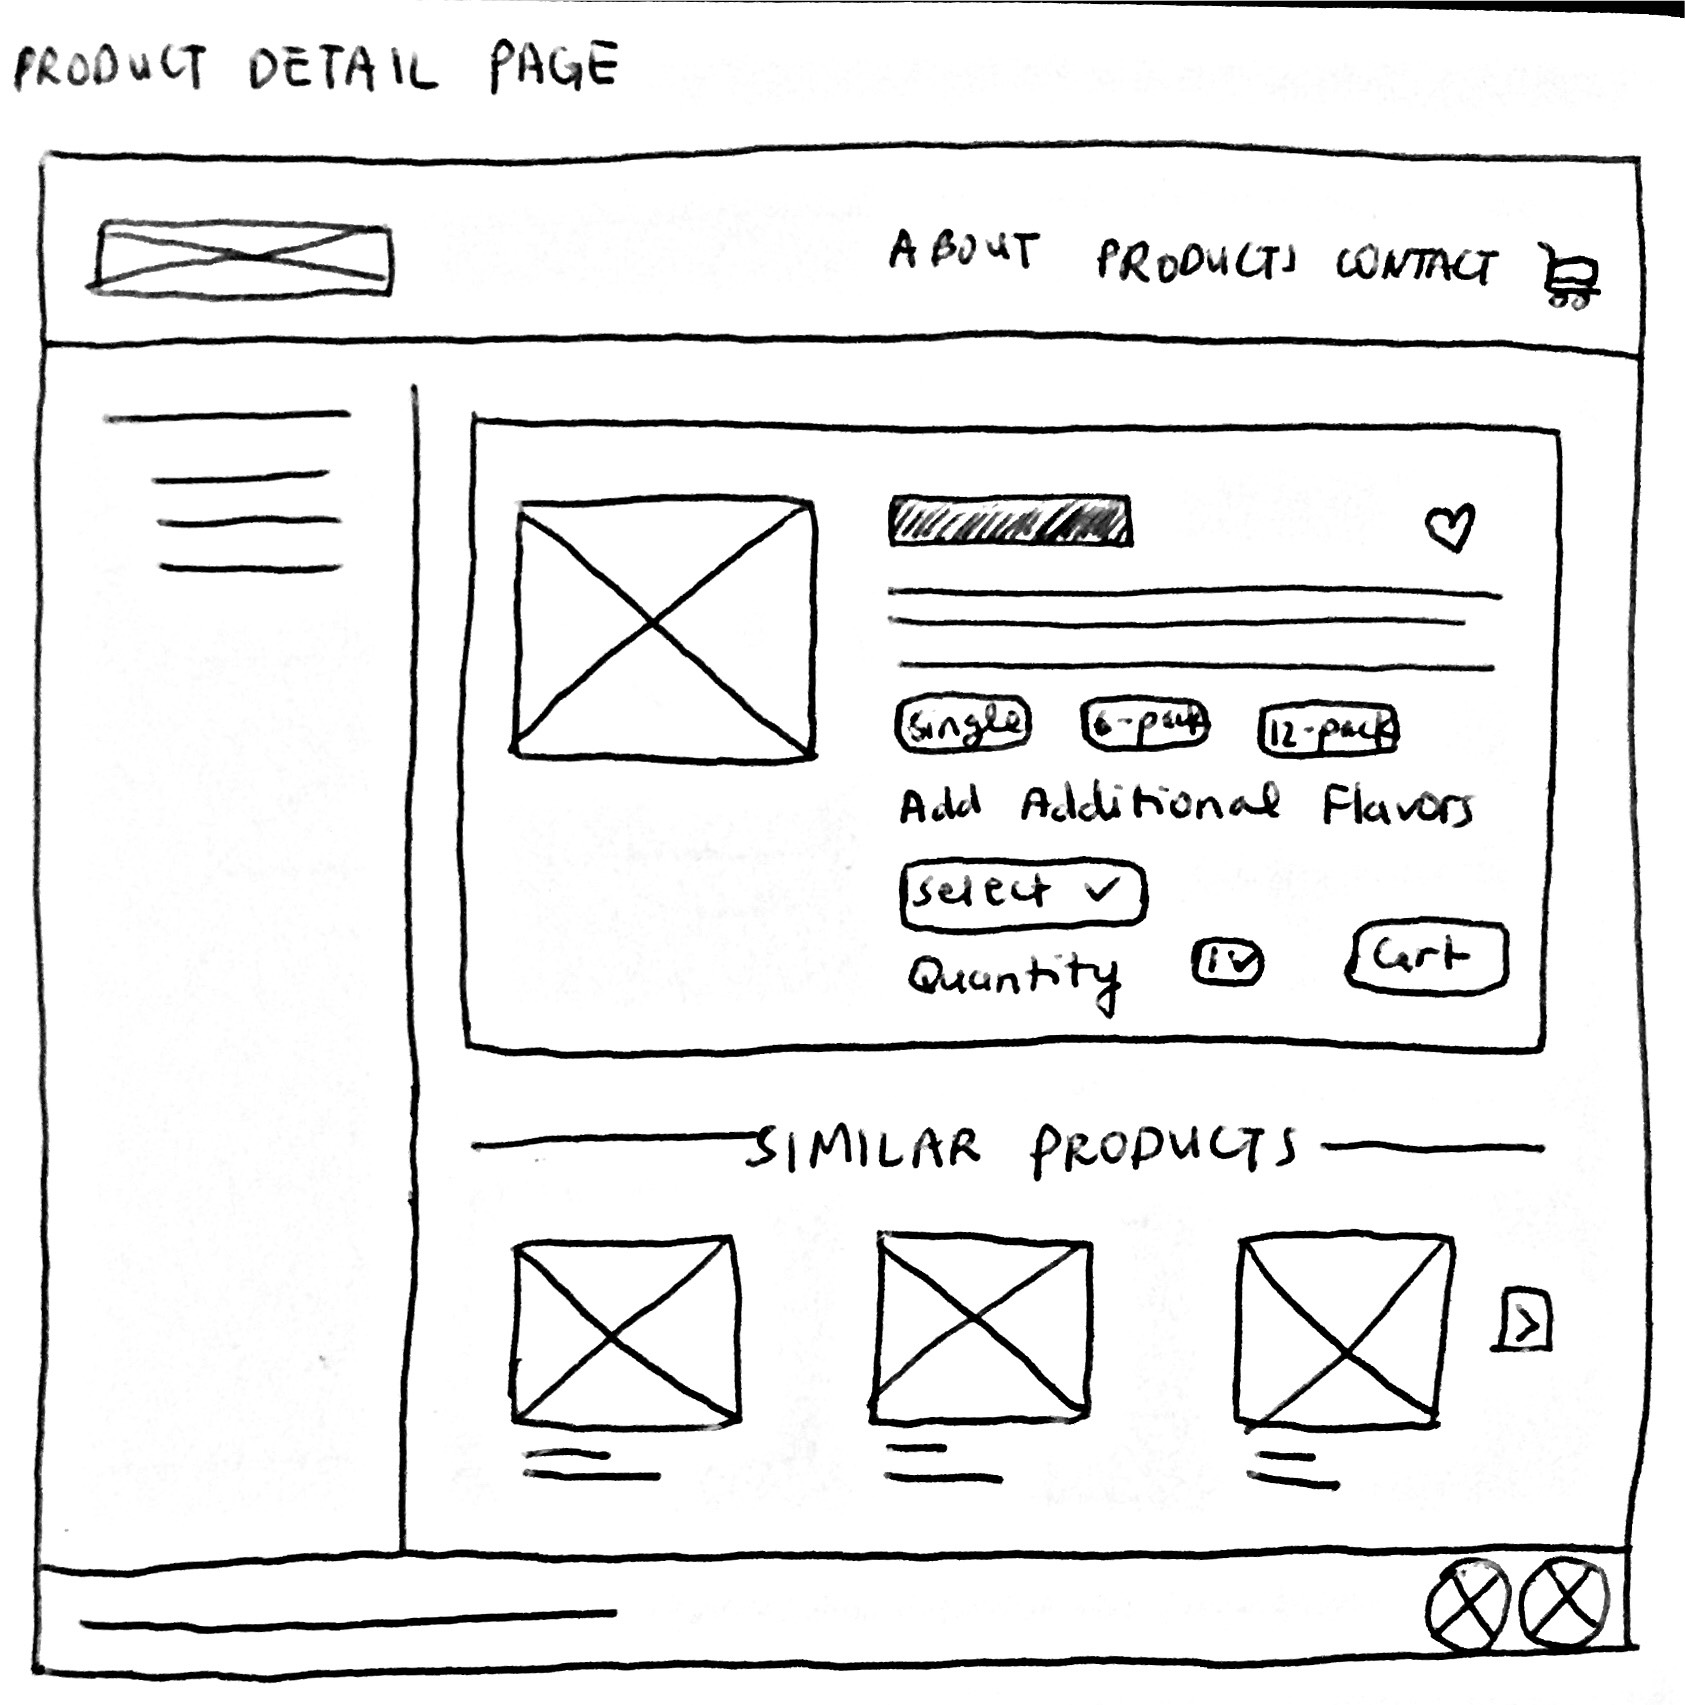 PRODUCT DETAIL PAGE
ABOUT PRODUCTS CONTACT
single 6-pack 12-pack
Add Additional Flavors
Select
Quantity 1 Cart
SIMILAR PRODUCTS